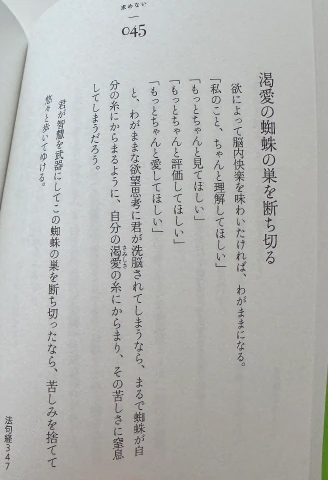 求めない
045
渇愛の蜘蛛の巣を断ち切る
欲によって脳内快楽を味わいたければ、わがままになる。
「私のこと、ちゃんと理解してほしい」
「もっとちゃんと見てほしい」
「もっとちゃんと評価してほしい」
「もっとちゃんと愛してほしい」
と、わがままな欲望思考に君が洗脳されてしまうなら、まるで蜘蛛が自
分の糸にからまるように、自分の渇愛の糸にからまり、その苦しさに窒息
してしまうだろう。
君が智慧を武器にしてこの蜘蛛の巣を断ち切ったなら、苦しみを捨てて
悠々と歩いてゆける。
法句経347